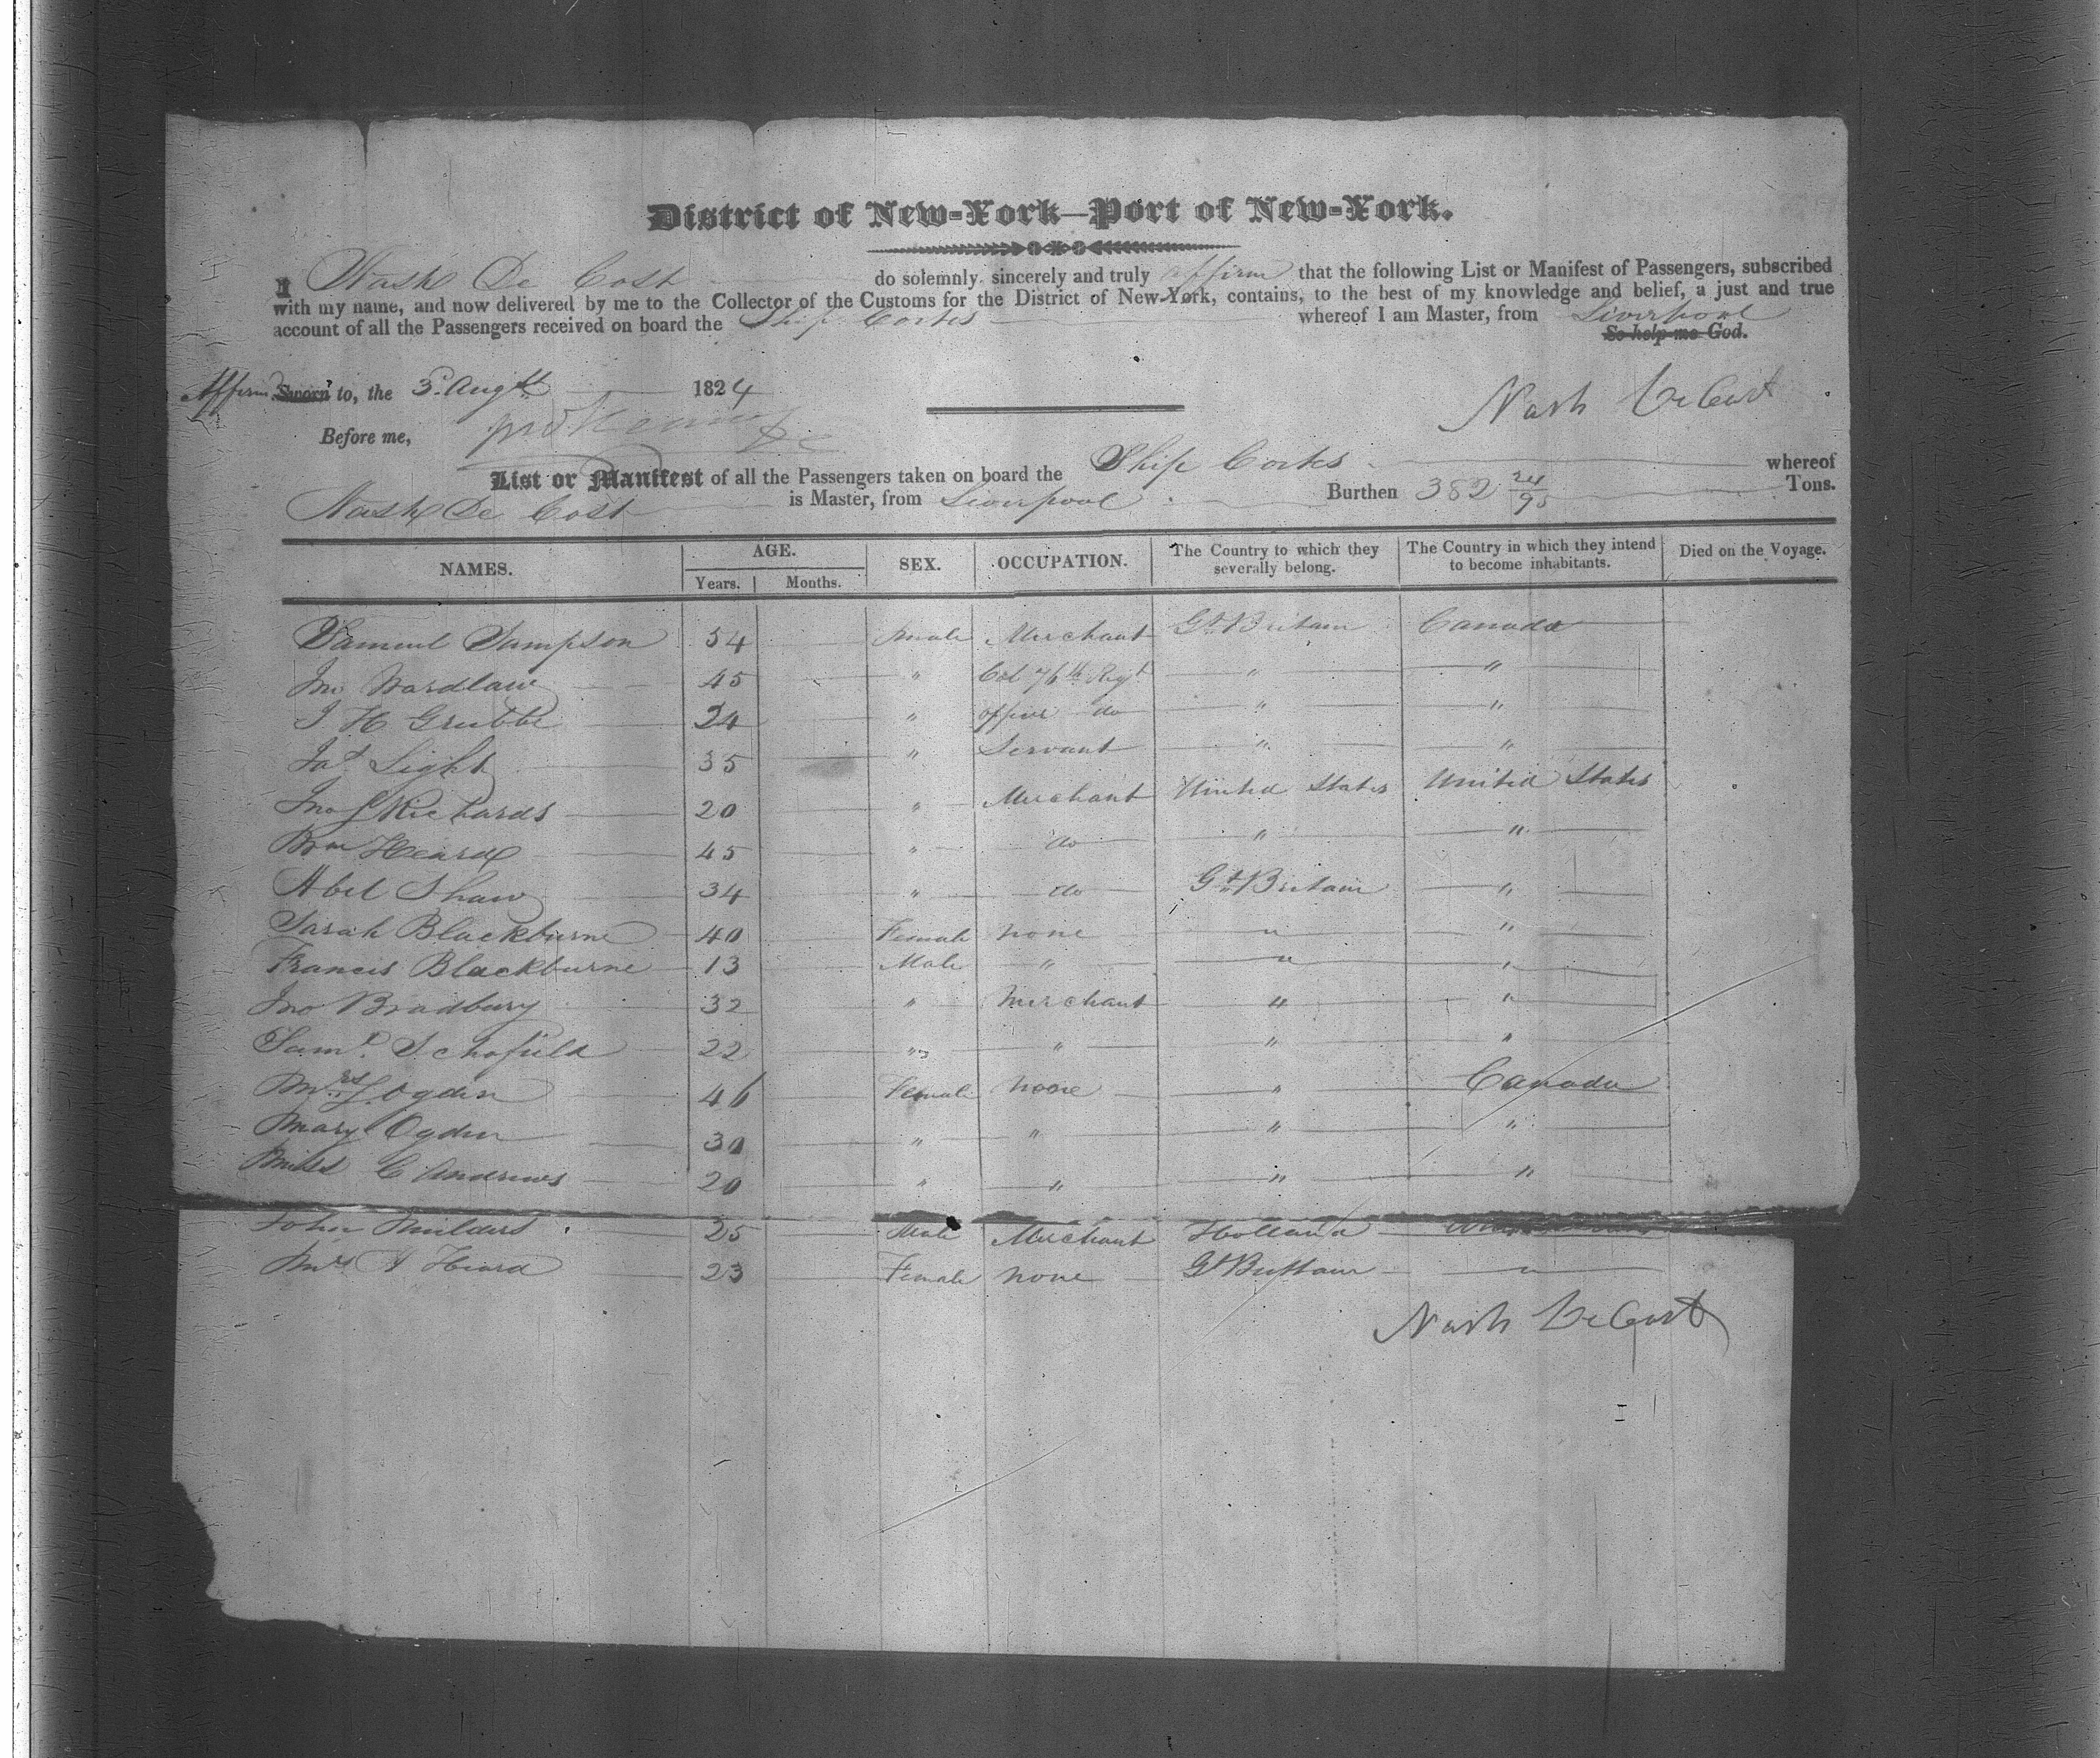 District of New-York—Port of New-York.
I Nash De Cost do solemnly, sincerely and truly affirm that the following List or Manifest of Passengers, subscribed
with my name, and now delivered by me to the Collector of the Customs for the District of New-York, contains, to the best of my knowledge and belief, a just and true
account of all the Passengers received on board the Ship Cortes whereof I am Master, from Liverpool
So help me God.
Affirmd Sworn to, the 3d Augst 1824
Nash DeCost
Before me,
List or Manifest of all the Passengers taken on board the Ship Cortes whereof
Nash De Cost is Master, from Liverpool Burthen 382 24/95 Tons.
NAMES. AGE. Years. Months. SEX. OCCUPATION. The Country to which they severally belong. The Country in which they intend to become inhabitants. Died on the Voyage.
Samuel Sampson 54 Male Merchant Gt Britain Canada
Jno Wardlaw 45 " Col 76th Regt " "
J H Grubbe 24 " officer do " "
Jas Light 35 " Servant " "
Jno Richards 20 " Merchant United States United States
Wm Heard 45 " do " "
Abel Shaw 34 " do Gt Britain "
Sarah Blackburne 40 Female none " "
Francis Blackburne 13 Male " " "
Jno Bradbury 32 " Merchant " "
Saml Schofield 22 " " " "
Mrs Ogden 46 Female none " Canada
Mary Ogden 30 " " " "
Miss C Andrews 20 " " " "
John Mulders 25 Male Merchant Holland
Mrs A Heard 23 Female none Gt Brittain "
Nash DeCost